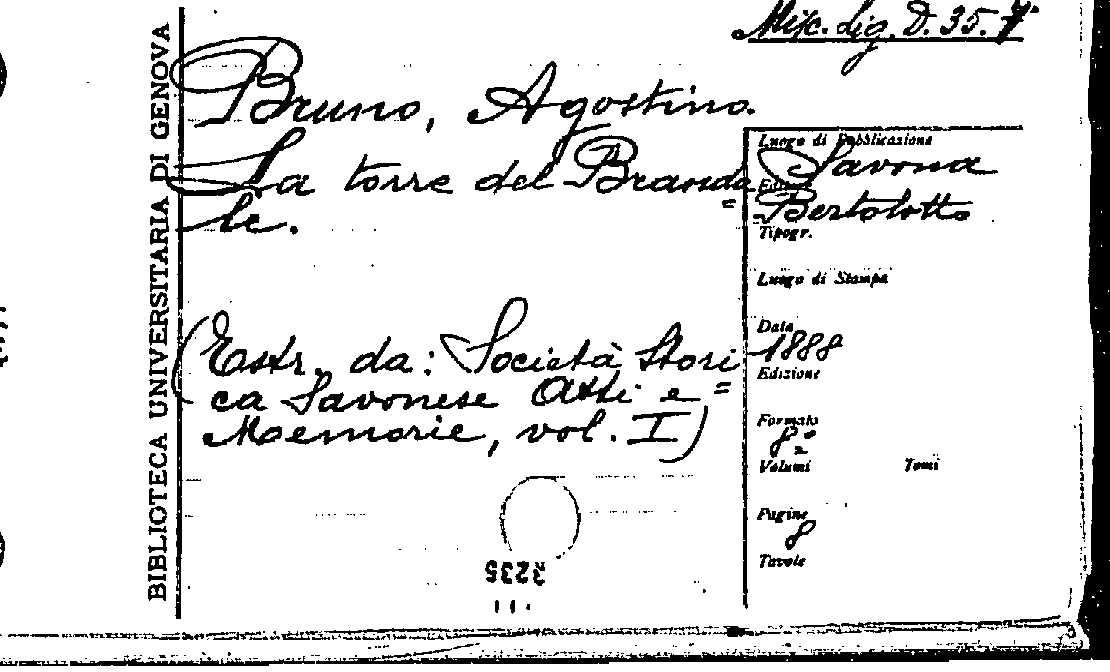 Misc. Lig. D. 35. 7.
BIBLIOTECA UNIVERSITARIA DI GENOVA
Bruno, Agostino.
La torre del Branda=
le.
(Estr. da: Società Stori=
ca Savonese Atti e
Memorie, vol. I)
Luogo di Pubblicazione
Savona
Editore
Bertolotto
Tipogr.
Luogo di Stampa
Data
1888
Edizione
Formato
8°
Volumi Tomi
Pagine
8
Tavole
3235